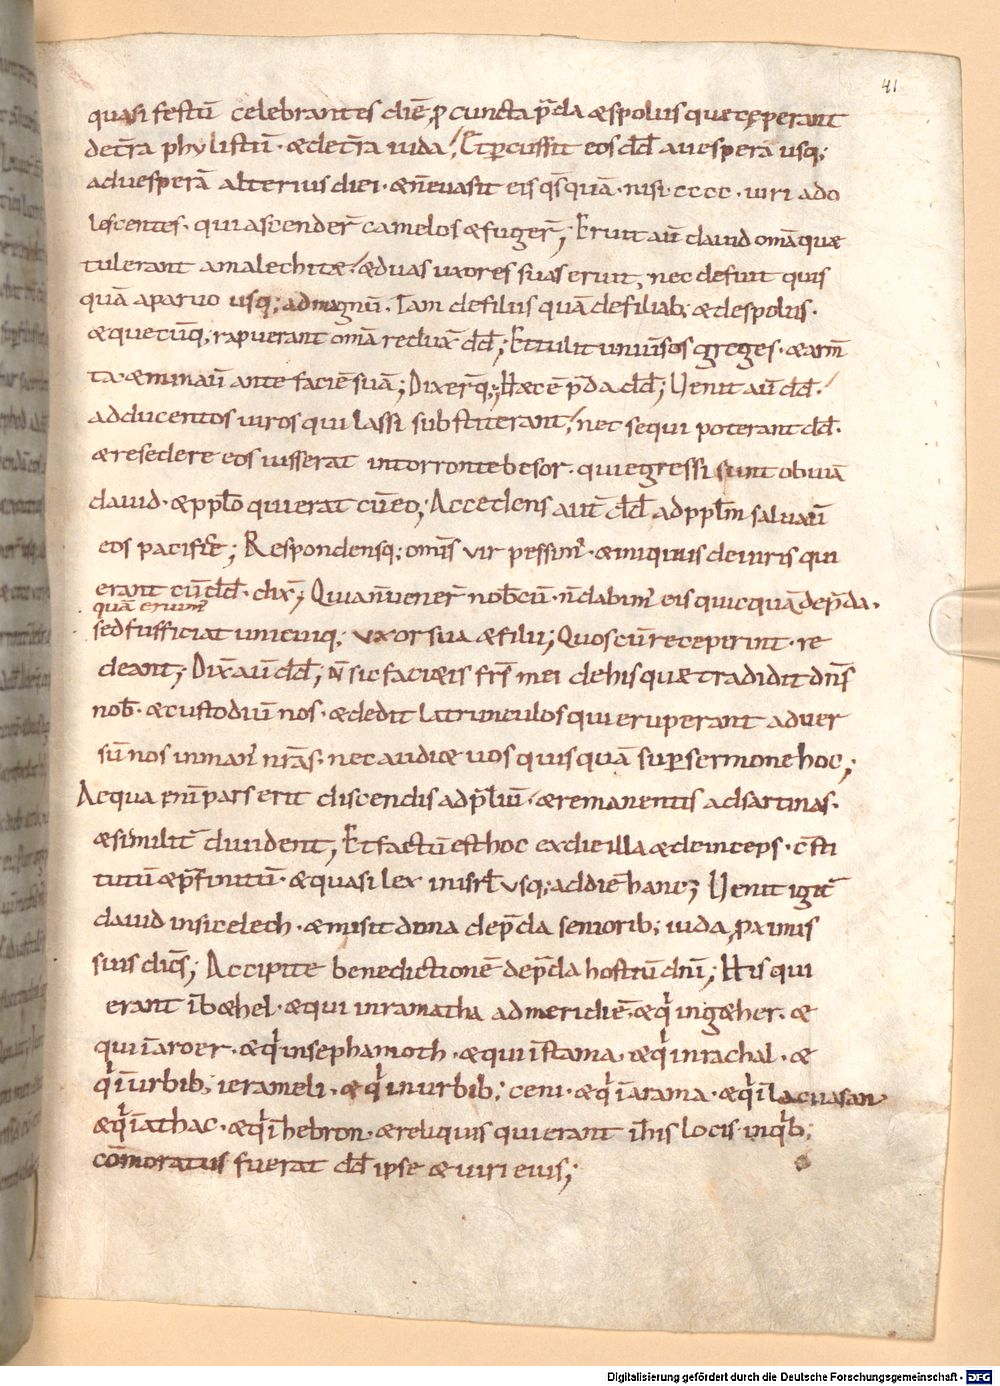 41
quasi festū celebrantes diē ꝓ cuncta p̄da & spoliis que cęperant
de t̄ra phylistiū · & de t̄ra iuda; Et ꝑcussit eos dd̄ a uespera usq;
ad uesperā alterius diei · & n̄ euasit eis qs̄quā · nisi · cccc · uiri ado
lescentes · qui ascender̄ camelos & fuger̄; Eruit aū dauid om̄a quæ
tulerant amalechitæ & duas uxores suas eruit, nec defuit quic
quā a paruo usq; ad magnū · Tam de filiis quā de filiab; & de spoliis ·
& quecūq; rapuerant om̄a reduxit dd̄; Et tulit uniūsos greges · & arm̄
ta · & minau̅ ante faciē suā; Dixer̄q; Hæc ē p̄da dd̄; Uenit aū dd̄
ad ducentos uiros qui lassi substiterant, nec sequi poterant dd̄ ·
& resedere eos iusserat in torronte besor · qui egressi sunt obuiā
dauid · & ppl̄o qui erat cū eo; Accedens aut̄ dd̄ ad ppl̄m salutau̅
eos pacifice; Respondensq; omīs vir pessim' · & iniquus de uiris qui
erant cū dd̄ · dix̄; Quia n̄ uener̄ nob̄cū · n̄ dabim' eis quicquā de p̄da ·
quā eruim'
sed sufficiat unicuiq; uxor sua & filii; Quos cū receperint · re
deant; Dix̄ aū dd̄; N̄ sic faci&is fr̄s mei de his quæ tradidit dn̄s
nob̄ · & custodiu̅ nos · & dedit latrunculos qui eruperant aduer
sū nos in man' nr̄as · nec audi& uos quisquā suꝑ sermone hoc;
Aequa eni̅ pars erit discendis ad p̄liū · & remanentis ad sarcinas ·
& similit̄ diuident; Et factū est hoc ex die illa & deinceps · c̄sti
tutū & p̄finitū · & quasi lex in isrl̄ usq; ad diē hanc; Uenit igit̄
dauid in sicelech · & misit dona de p̄da seniorib; iuda, ꝓximis
suis dicn̄s; Accipite benedictionē de p̄da hostiū dni̅; His qui
erant i̅ b&hel · & qui in ramatha ad meridiē · & qⁱ in g&her · &
qui i̅ aroer · & qⁱ in sephamoth · & qui i̅ stama · & qⁱ in rachal · &
qⁱ i̅ urbib; ierameli · & qⁱ in urbib; ceni · & qⁱ i̅ arama · & qⁱ i̅ lacu asan
& qⁱ i̅ athac · & qⁱ i̅ hebron · & reliquis qui erant i̅ his locis · in qⁱb;
cōmoratus fuerat dd̄ ipse & uiri eius;
Digitalisierung gefördert durch die Deutsche Forschungsgemeinschaft - DFG